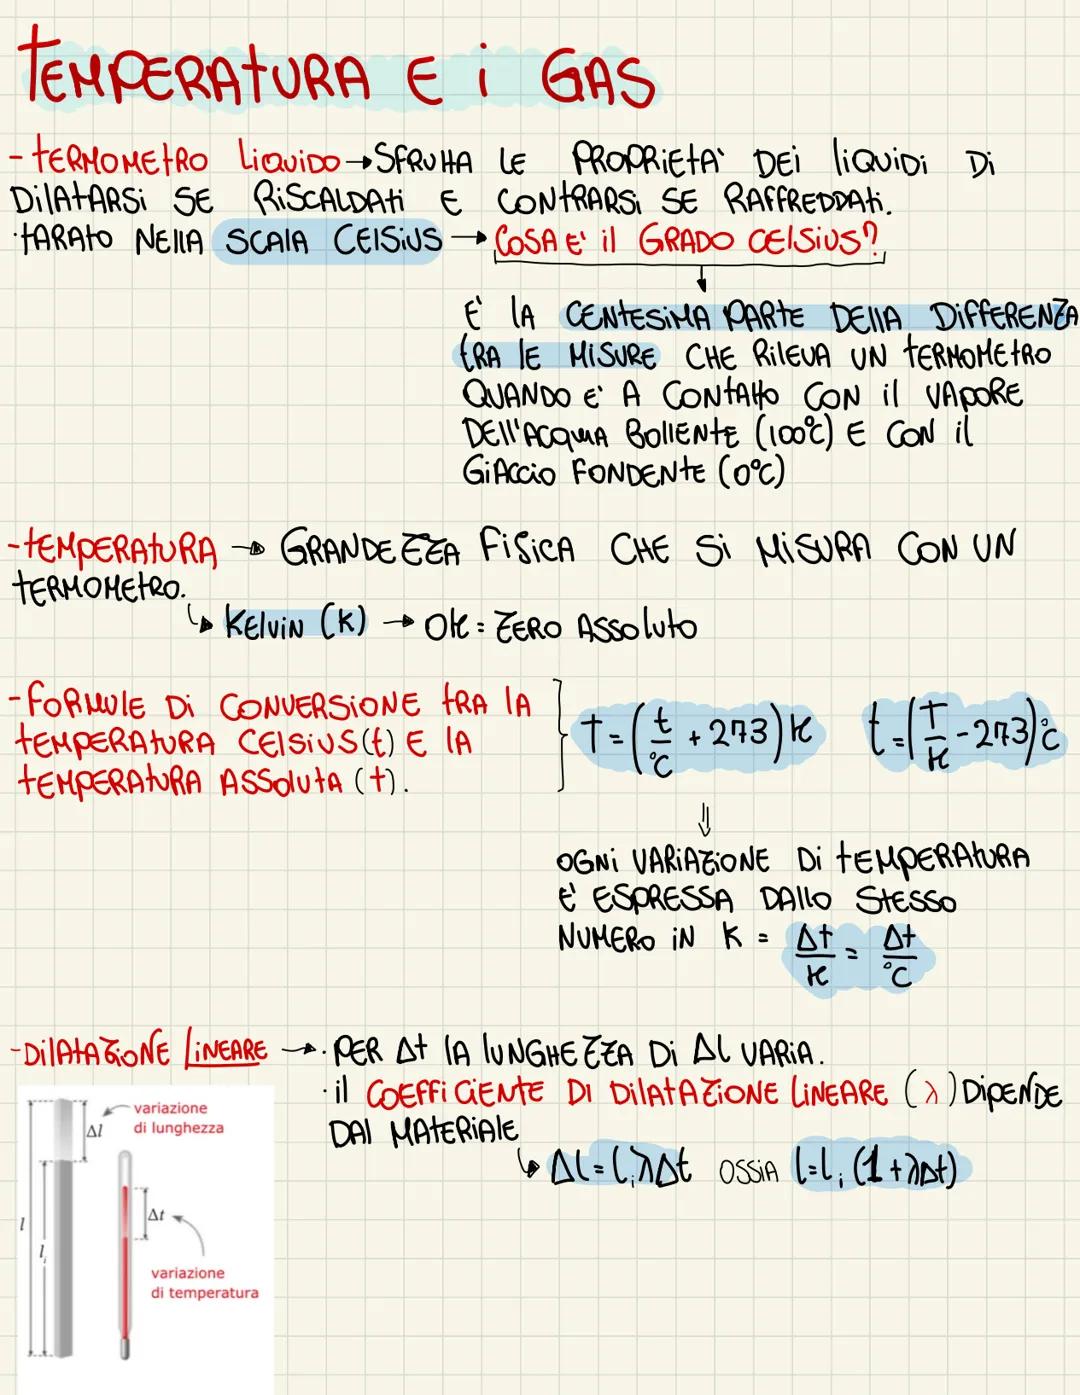 TEMPERATURA E i GAS
- TERMOMETRO LIQUIDO → SFRUTTA LE PROPRIETA' DEI LIQUIDI DI
DILATARSI SE RISCALDATI E CONTRARSI SE RAFFREDDATI.
·TARATO NELLA SCALA CELSIUS → COSA E' IL GRADO CELSIUS?
E' LA CENTESIMA PARTE DELLA DIFFERENZA
TRA LE MISURE CHE RILEVA UN TERMOMETRO
QUANDO E' A CONTATTO CON IL VAPORE
DELL'ACQUA BOLLENTE (100°C) E CON IL
GIACCIO FONDENTE (0°C)
- TEMPERATURA → GRANDEZZA FISICA CHE SI MISURA CON UN
TERMOMETRO.
↳ KELVIN (K) → 0K = ZERO ASSOLUTO
- FORMULE DI CONVERSIONE TRA LA
TEMPERATURA CELSIUS (t) E LA
TEMPERATURA ASSOLUTA (T).
T = (t/°C + 273) K t = (T/K - 273)°C
⇓
OGNI VARIAZIONE DI TEMPERATURA
E' ESPRESSA DALLO STESSO
NUMERO IN K = ΔT/K = Δt/°C
- DILATAZIONE LINEARE → · PER Δt LA LUNGHEZZA DI Δl VARIA.
· IL COEFFICIENTE DI DILATAZIONE LINEARE (λ) DIPENDE
DAL MATERIALE
↳ Δl = lᵢλΔt OSSIA l = lᵢ (1 + λΔt)
variazione
di lunghezza
Δl
Δt
l
lᵢ
variazione
di temperatura